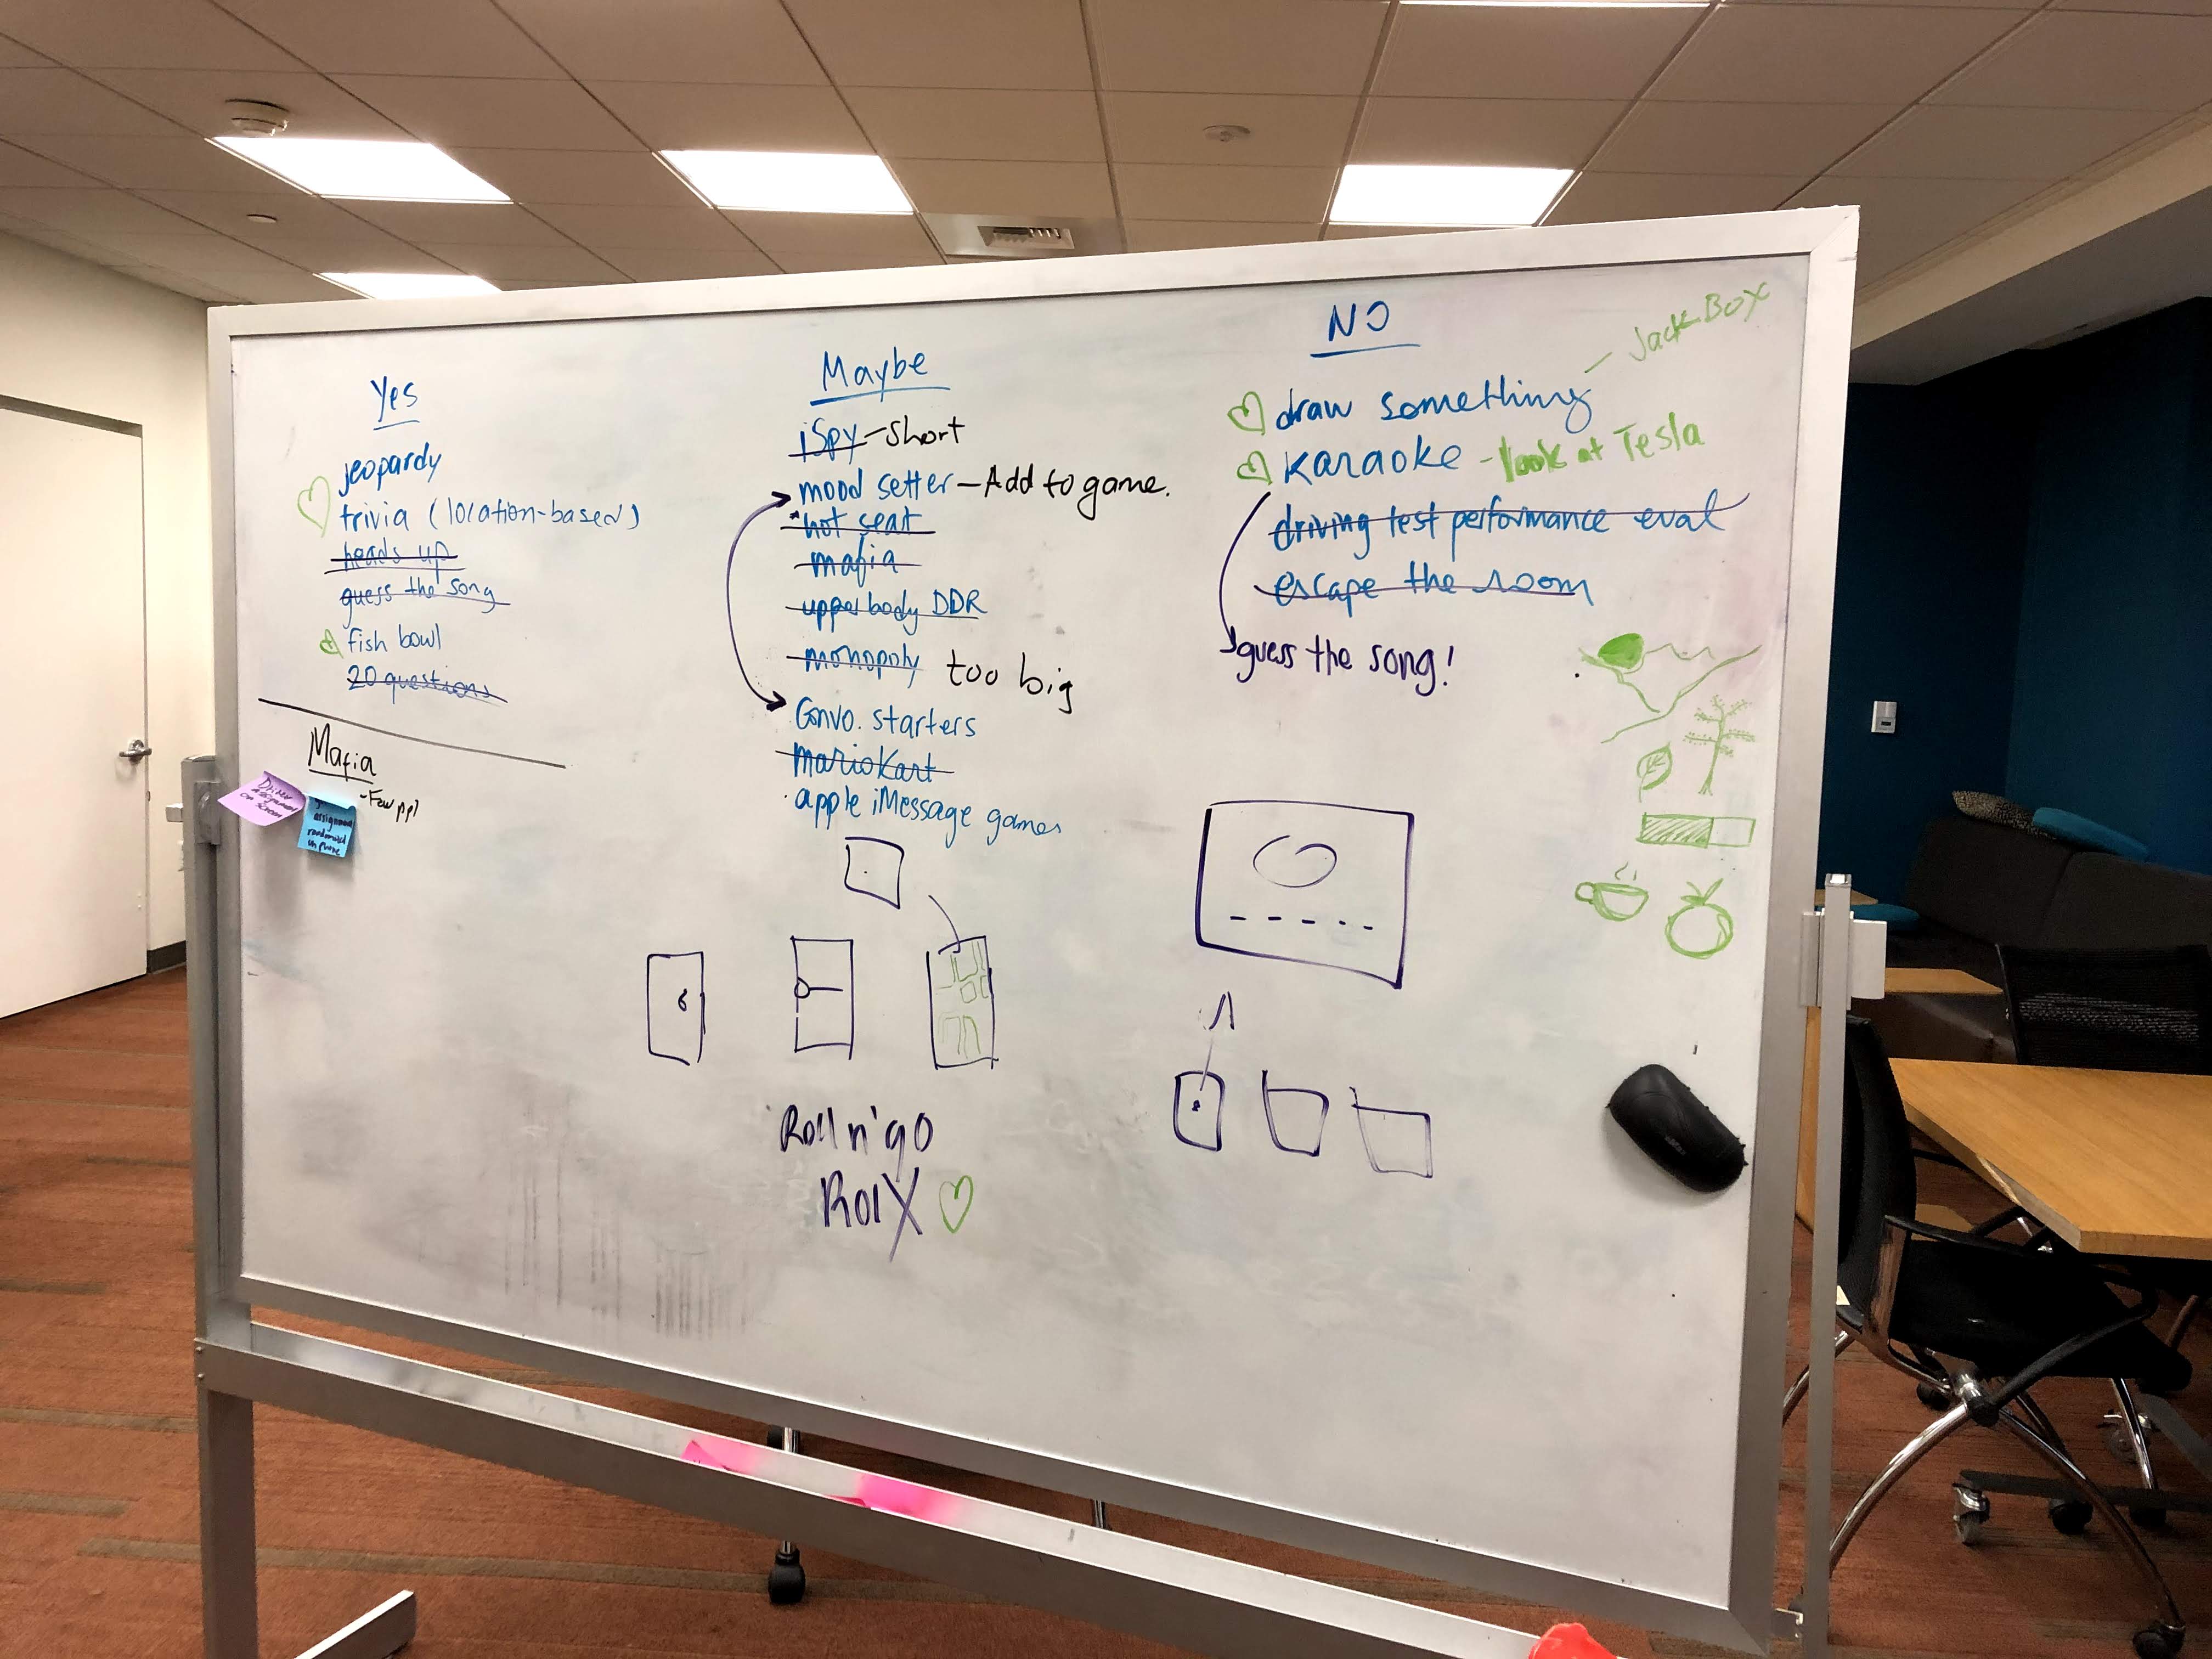 Yes
jeopardy
trivia (location-based)
heads up
guess the song
fish bowl
20 questions
Mafia
-Few ppl
on
assigned
randomized
on phone
Maybe
iSpy - Short
mood setter - Add to game.
hot seat
mafia
upper body DDR
monopoly too big
Convo. starters
mariokart
apple iMessage games
Roll n' go
RolX
NO
- JackBox
draw something
karaoke - look at Tesla
driving test performance eval
escape the room
guess the song!